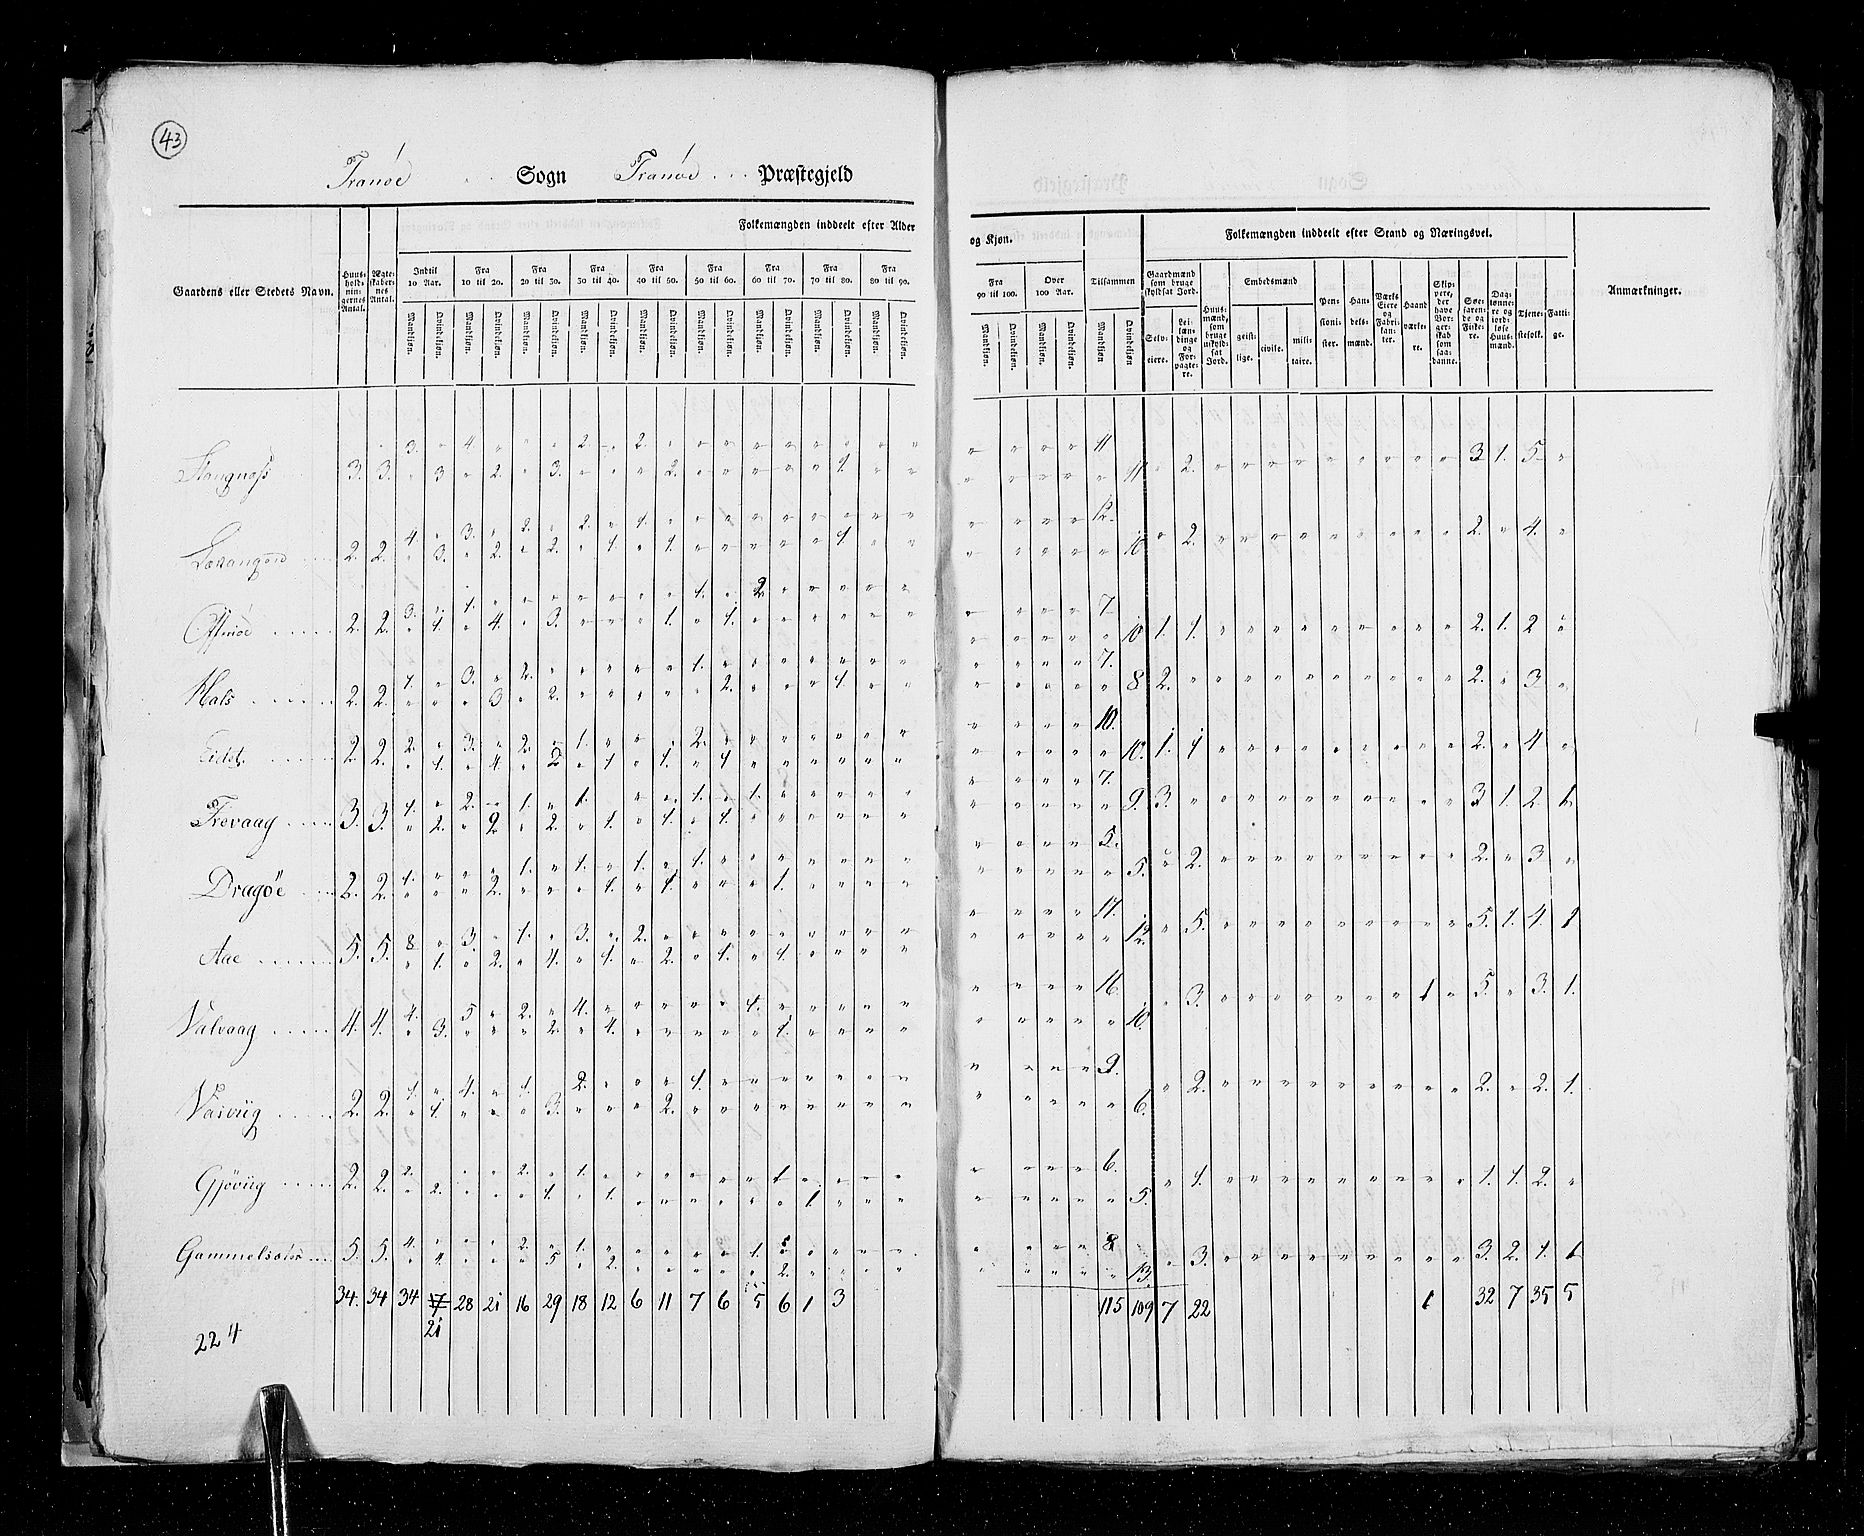 43
Tranøe Sogn Tranøe Præstegjeld
Folkemængden inddeelt efter Alder og Kjøn.
Folkemængden inddeelt efter Stand og Næringsvei.
Gaardens eller Stedets Navn.
Huusholdningernes Antal.
Ægteskabernes Antal.
Indtil 10 Aar.
Fra 10 til 20.
Fra 20 til 30.
Fra 30 til 40.
Fra 40 til 50.
Fra 50 til 60.
Fra 60 til 70.
Fra 70 til 80.
Fra 80 til 90.
Fra 90 til 100.
Over 100 Aar.
Tilsammen
Mandkjøn. Qvindekjøn.
Gaardmænd som bruge skyldsat Jord.
Selveiere.
Leilændinge og Forpagtere.
Huusmænd, som bruge uskyldsat Jord.
Embedsmænd
geistlige. civile. militaire.
Pensionister.
Handelsmænd.
Værks Eiere og Fabrikanter.
Haandværkere.
Skippere, der have Borgerskab som saadanne.
Søefarende og Fiskere.
DagLønnere og jordløse Huusmænd.
Tjenestefolk.
Fattige.
Anmærkninger.
3. 4. 2. 2. 11
3. 3. 3. 2. 3. 2. 1. 11 2. 3 1. 5.
4. 3. 2. 2. 1. 12.
2. 2. 3. 2. 2. 1. 1. 1. 10 2. 2. 4.
3. 1. 1. 2 7
2. 2. 1. 4. 3. 1. 1. 10 1. 1. 2. 1. 2
1. 3. 2. 1. 7.
Hals 2. 2. 3 2. 2. 1. 8 2. 2. 3
2. 3. 2. 1. 2. 10.
Eidet 2. 2. 1. 4. 2 1 1. 1 10. 1. 1 2. 4
1. 2. 1. 1. 1. 1. 7.
Trevaag 3. 3. 2. 2 2. 1. 1. 1. 9. 3. 3 1. 2 1
1. 1. 1. 1. 1. 5.
Dragøe 2. 2. 2. 1. 1. 1. 5. 2. 2. 3
8 3. 1. 3. 2. 17.
Aae 5. 5. 1. 2. 4. 1. 2. 1. 1. 12. 5. 5. 1. 4. 1
4. 5 2. 4. 1. 16.
Valvaag 4. 4. 3. 2. 4. 1. 10. 3. 1 5. 3. 1.
1. 4. 1. 2. 1. 9.
Vasviig 2. 2. 1. 3. 2. 6. 2. 2. 2. 1.
2. 2. 1. 1 6.
Gjøviig 2. 2. 2. 1. 1. 1. 5. 1. 1. 1. 2.
4. 2. 1. 1. 8
5. 5. 4. 5 2. 2. 13. 3. 3. 2. 1. 1
34. 34 34 7 28 21 16 29 18 12 6 11 7 6 5 6 1 3 115 109 7 22 1 32 7 35 5
21
224